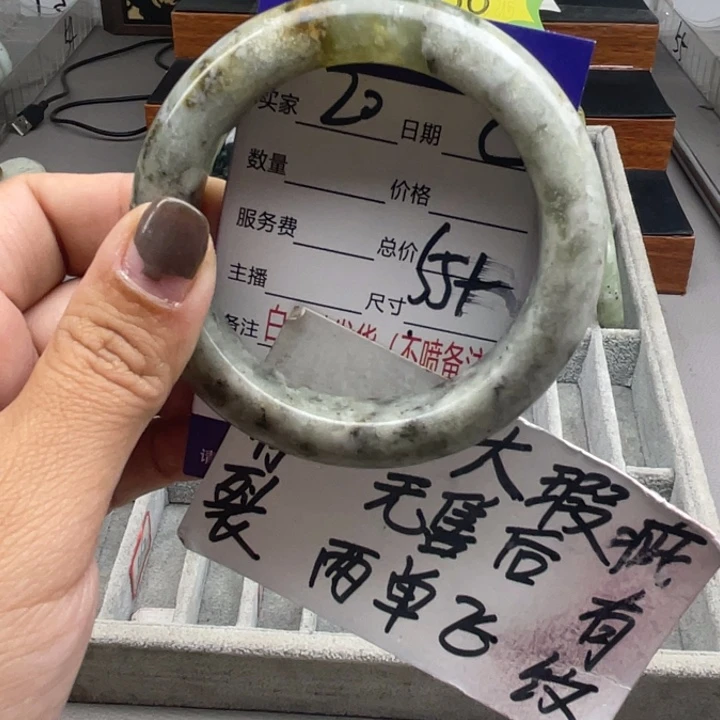 买家 日期
数量 价格
服务费 总价
主播 尺寸 55+
备注 白 发货（不喷备注
大瑕疵有纹裂
无售后
两单飞